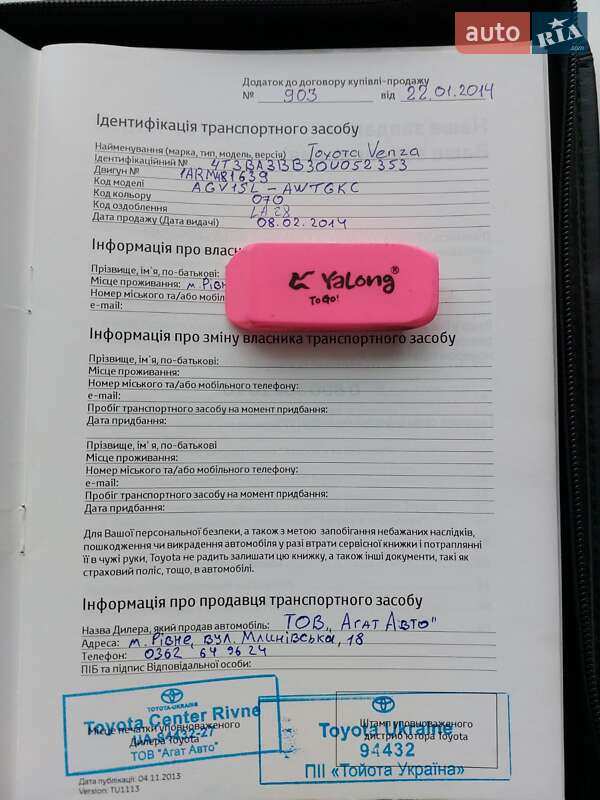 auto RIA .com
Додаток до договору купівлі-продажу
№ 903 від 22.01.2014
Ідентифікація транспортного засобу
Найменування (марка, тип, модель, версія) Toyota Venza
Ідентифікаційний № 4T3BA3BB30U052353
Двигун № 1ARM481639
Код моделі AGV15L-AWTGKC
Код кольору 070
Код оздоблення LA28
Дата продажу (Дата видачі) 08.02.2014
Інформація про влас
Прізвище, ім'я, по-батькові:
Місце проживання: м. Рівн
Номер міського та/або мобіл
e-mail:
YaLong®
To Go!
Інформація про зміну власника транспортного засобу
Прізвище, ім'я, по-батькові:
Місце проживання:
Номер міського та/або мобільного телефону:
e-mail:
Пробіг транспортного засобу на момент придбання:
Дата придбання:
Прізвище, ім'я, по-батькові
Місце проживання:
Номер міського та/або мобільного телефону:
e-mail:
Пробіг транспортного засобу на момент придбання:
Дата придбання:
Для Вашої персональної безпеки, а також з метою запобігання небажаних наслідків,
пошкодження чи викрадення автомобіля у разі втрати сервісної книжки і потраплянні
її в чужі руки, Toyota не радить залишати цю книжку, а також інші документи, такі як
страховий поліс, тощо, в автомобілі.
Інформація про продавця транспортного засобу
Назва Дилера, який продав автомобіль: ТОВ „Агат Авто"
Адреса: м. Рівне, вул. Млинівська, 18
Телефон: 0362 64 96 24
ПІБ та підпис Відповідальної особи:
TOYOTA-UKRAINE
Toyota Center Rivne
UA-94432-27
Місце печатки уповноваженого
Дилера Toyota
ТОВ "Агат Авто"
Toyota Ukraine
Штамп уповноваженого
дистриб'ютора Toyota
94432
ПІІ «Тойота Україна»
Дата публікації: 04.11.2013
Version: TU1113